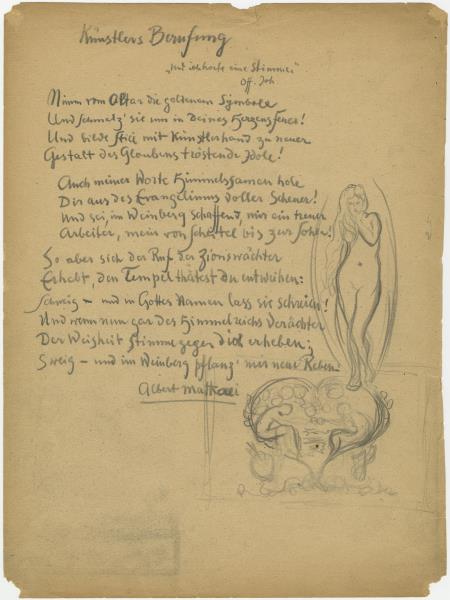 Künstlers Berufung
„Und ich hörte eine Stimme"
Off. Joh.
Nimm vom Altar die goldenen Symbole
Und schmelz' sie um in deines Herzens Feuer!
Und bilde still mit Künstlerhand zu neuer
Gestalt des Glaubens tröstende Idole!
Auch meiner Worte Himmelssamen hole
Dir aus des Evangeliums voller Scheuer!
Und sei, im Weinberg schaffend, mir ein treuer
Arbeiter, mein von Scheitel bis zur Sohle!
So aber sich der Ruf der Zionswächter
Erhebt, den Tempel thätest du entweihen:
Schweig – und in Gottes Namen lass sie schreien!
Und wenn nun gar des Himmelreichs Verächter
Der Weisheit Stimme gegen dich erheben;
Sweig – und im Weinberg pflanz' mir neue Reben.
Albert